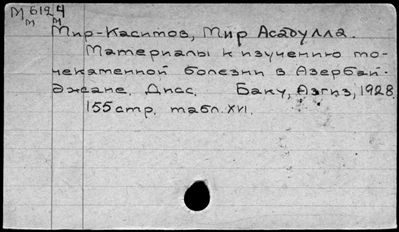 М 6124
м м
Мир-Касимов, Мир Асадулла.
Материалы к изучению мо-
чекаменной болезни в Азербай-
джане. Дисс. Баку, Азгиз, 1928.
155 стр. табл. XVI.